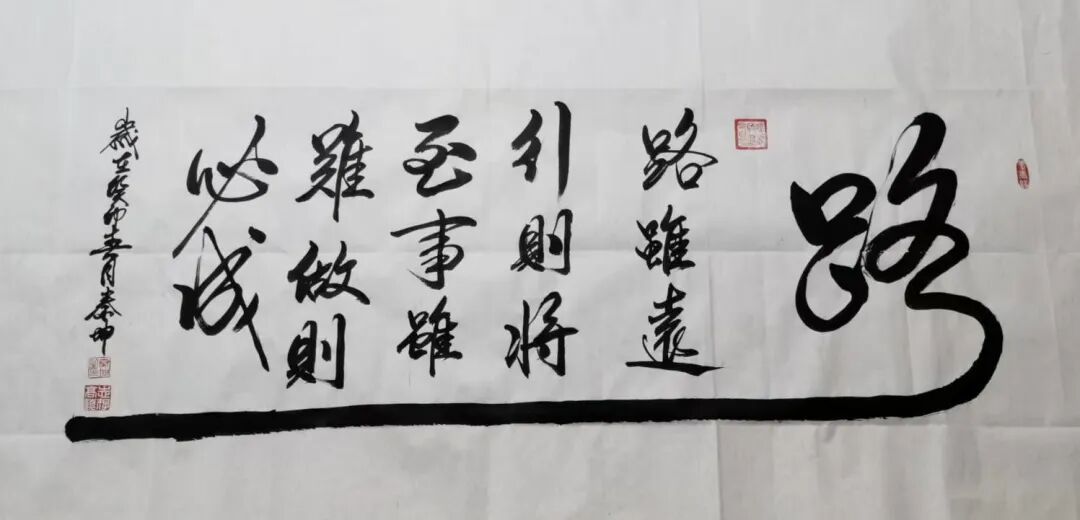 路
路雖遠
行則將
至事雖
難做則
必成
歲在癸卯月秦坤